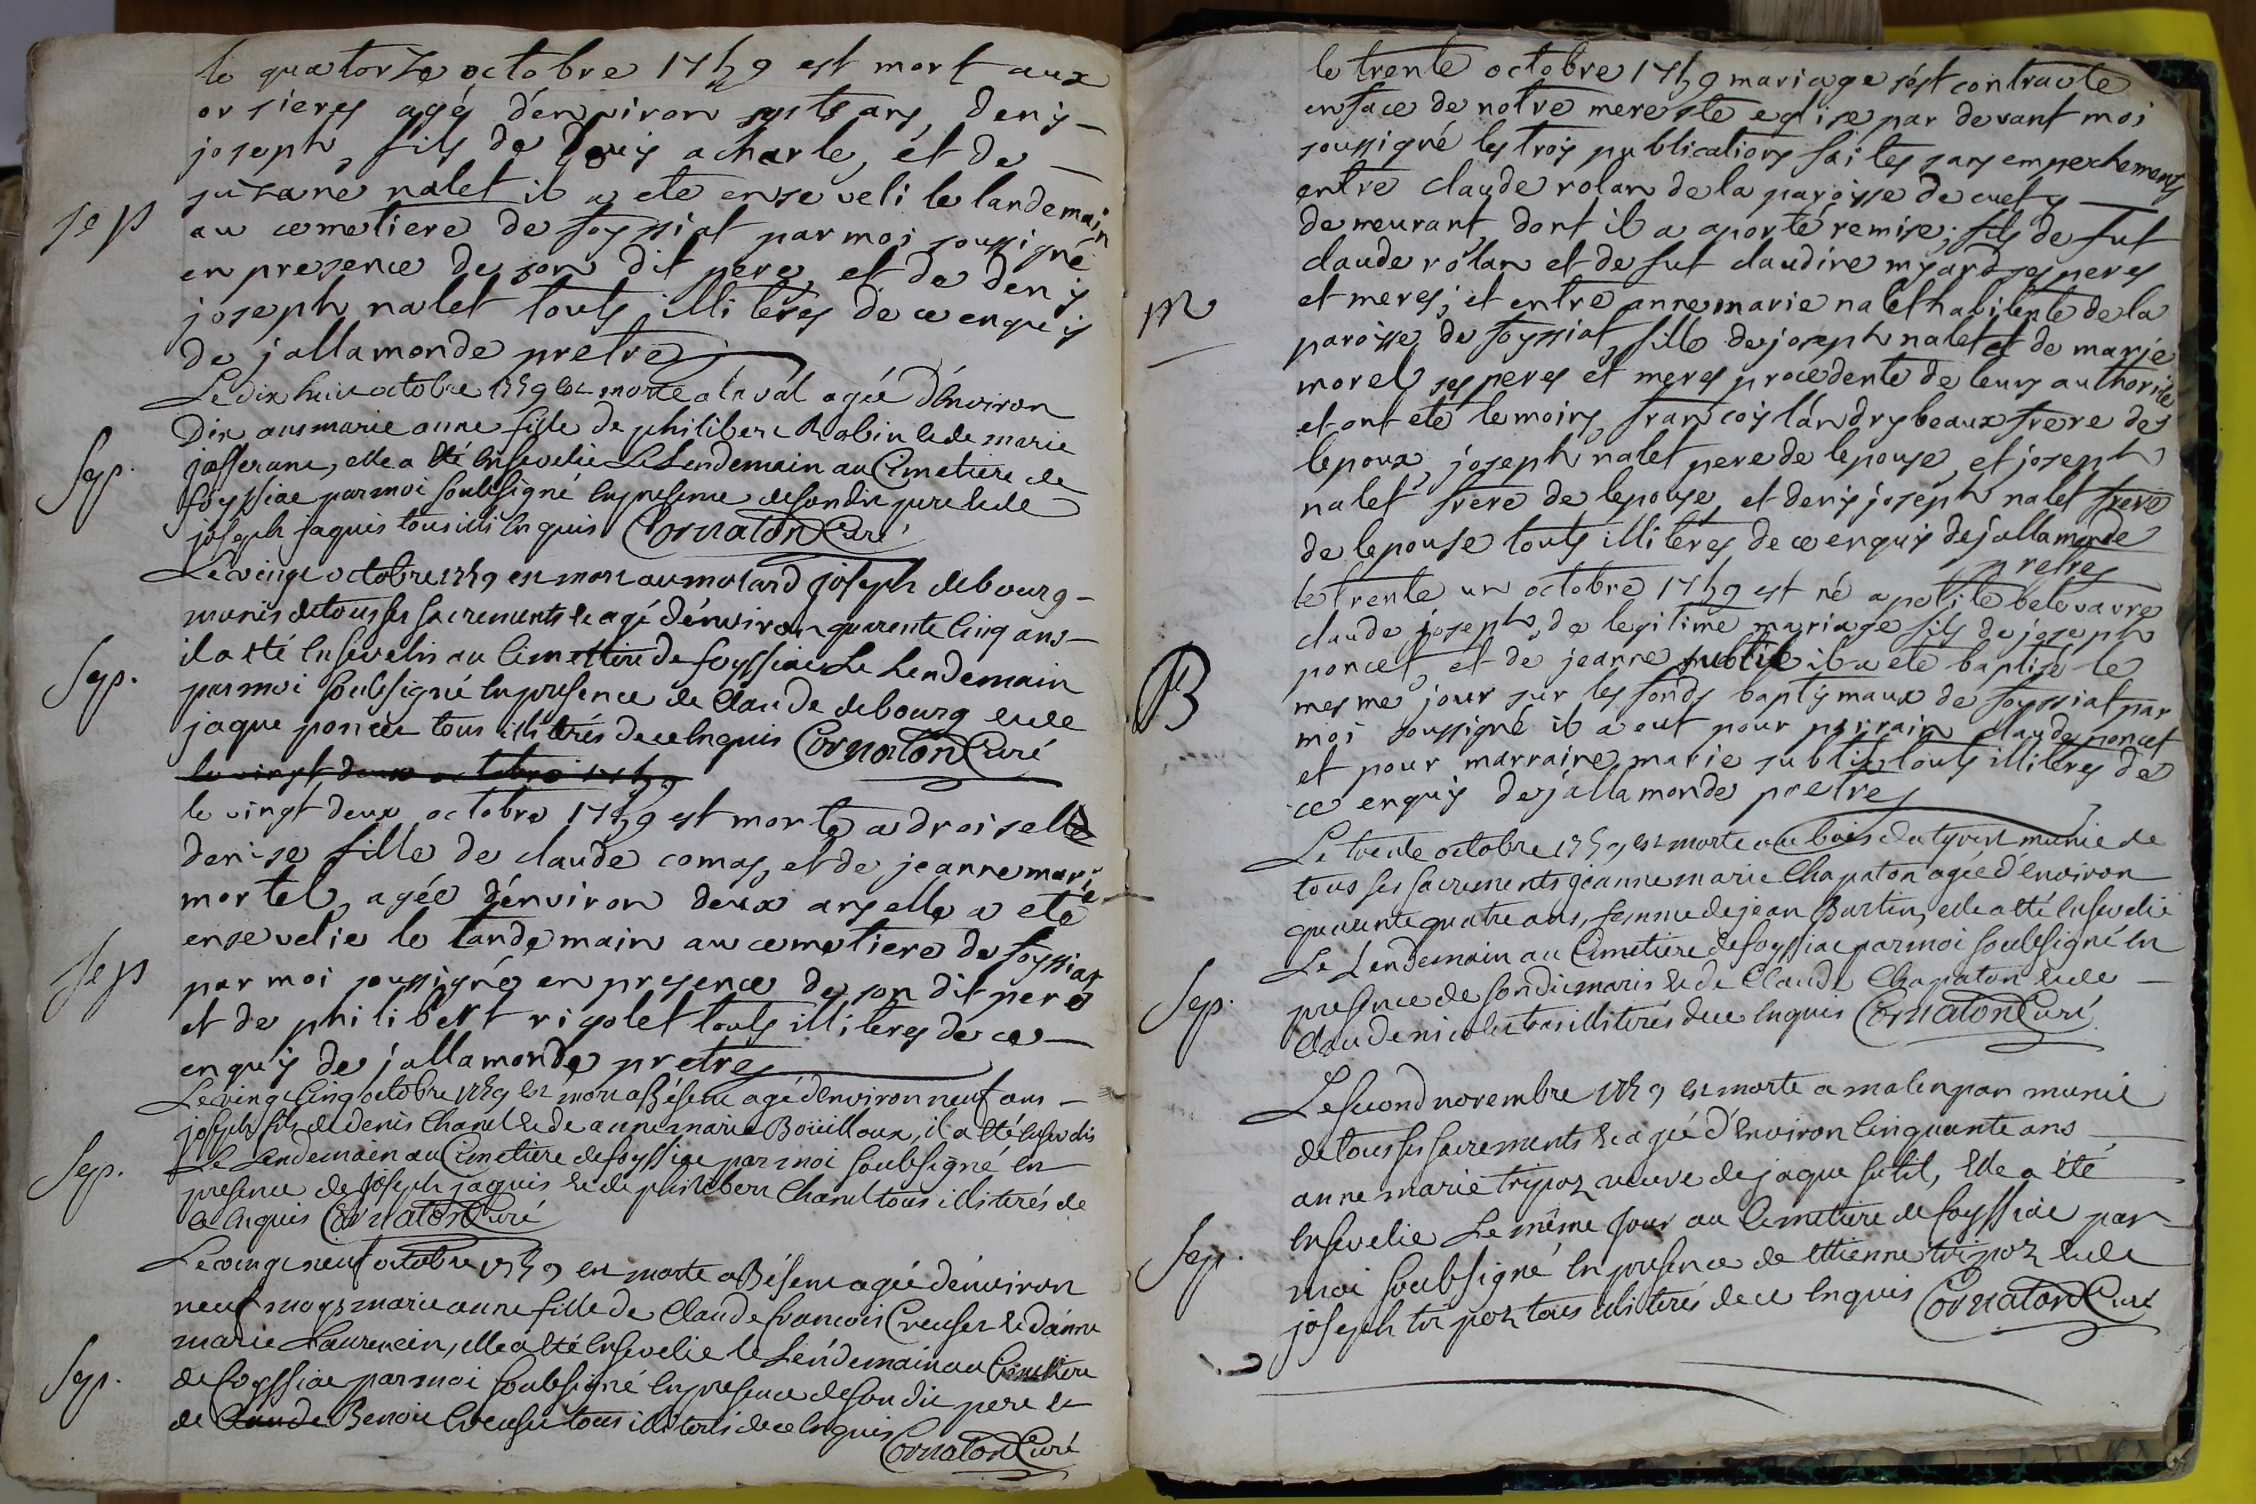 le quatorze octobre 1759 est mort aux
orsieres agé d'environ septs ans, denis
joseph, fils de denis acharle, et de
suzane nalet il a eté enseveli le landemain
sep
au cemetiere de foyssiat par moi soussigné
en presence de son dit pere, et de denis
joseph nalet touts illiterés de ce enquis
dejallamonde pretre
Le dix huit octobre 1759 est morte a laval agée d'environ
Dix ans marie anne fille de philibert Robin et de marie
Sep.
josserane, elle a été Ensevelie Le Lendemain au Cimetiere de
foyssiat par moi soubsigné En presence de son dit pere et de
joseph jaquis tous illi Enquis Cornaton Curé
Le vingt octobre 1759 est mort au molard joseph debourg
munis de tous ses sacrements et agé d'environ quarente Cinq ans
il a été Ensevelis au Cimettiere de foyssiat Le Lendemain
Sep.
par moi soubsigné En presence de Claude debourg et de
jaque poncet tous illiterés de ce Enquis Cornaton Curé
le vingt deux octobre 1759
le vingt deux octobre 1759 est morte a droiselle
denise fille de claude comas, et de jeanne marie
mortel, agée d'environ deux ans elle a eté
ensevelie le landemain au cemetiere de foyssiat
Sep
par moi soussigné en presence de son dit pere
et de philibert rigolet touts illiterés de ce
enquis dejallamonde pretre
Le vingt Cinq octobre 1759 est mort a Béseme agé d'environ neuf ans
joseph fils de denis Chanel et de anne marie Bouilloux, il a été Ensevelis
Sep.
Le Lendemain au Cimetiere de foyssiat par moi soubsigné En
presence de joseph jaquis et de philibert Chanel tous illiterés de
ce Enquis Cornaton Curé
Le vingt neuf octobre 1759 est morte a Béseme agée d'environ
neuf moys marie anne fille de Claude francois Creuset et d'anne
marie Laurencin, elle a été Ensevelie le Lendemain au Cimettiere
Sep.
de foyssiat par moi soubsigné En presence de son dit pere et
de Claude Benoit Creuset tous illiterés de ce Enquis
Cornaton Curé
le trente octobre 1759 mariage s'est contracté
en face de notre mere ste eglise par devant moi
soussigné les trois publications faites sans empechements
entre claude rolan de la paroisse de cuet y
demeurant dont il a aporté remise; fils de fut
claude rolan et de fut claudine myard ses peres
M
et meres; et entre anne marie nalet habitente de la
paroisse de foyssiat, fille de joseph nalet et de marie
morel ses peres et meres procedente de leurs authorité
et ont eté temoins, francois landry beaux frere de
lepoux, joseph nalet pere de lepouse, et joseph
nalet frere de lepouse, et denis joseph nalet frere
de lepouse touts illiterés de ce enquis dejallamonde
pretre
le trente un octobre 1759 est né a petite belouavre
claude joseph, de legitime mariage fils de joseph
poncet, et de jeanne sublit il a eté baptisé le
B
mesme jour sur les fonds baptismaux de foyssiat par
moi soussigné il a eut pour parrain claude poncet
et pour marraine marie sublit touts illiterés de
ce enquis dejallamonde pretre
Le trente octobre 1759 est morte au bois du tyret munie de
tous ses sacrements jeanne marie Chapaton agée d'environ
quarente quatre ans, femme de jean Burtin, elle a été Ensevelie
Le Lendemain au Cimetiere de foyssiat par moi soubsigné En
Sep.
presence de son dit maris et de Claude Chapaton et de
Claude nicolet tous illiterés de ce Enquis Cornaton Curé
Le second novembre 1759 est morte a malenpan munie
de tous ses sacrements et agée d'Environ Cinquante ans
anne marie tripoz veuve de jaque sutil, Elle a été
Ensevelie Le même jour au Cimetiere de foyssiat par
Sep.
moi soubsigné En presence de Ettienne tripoz et de
joseph tripoz tous illiterés de ce Enquis Cornaton Curé